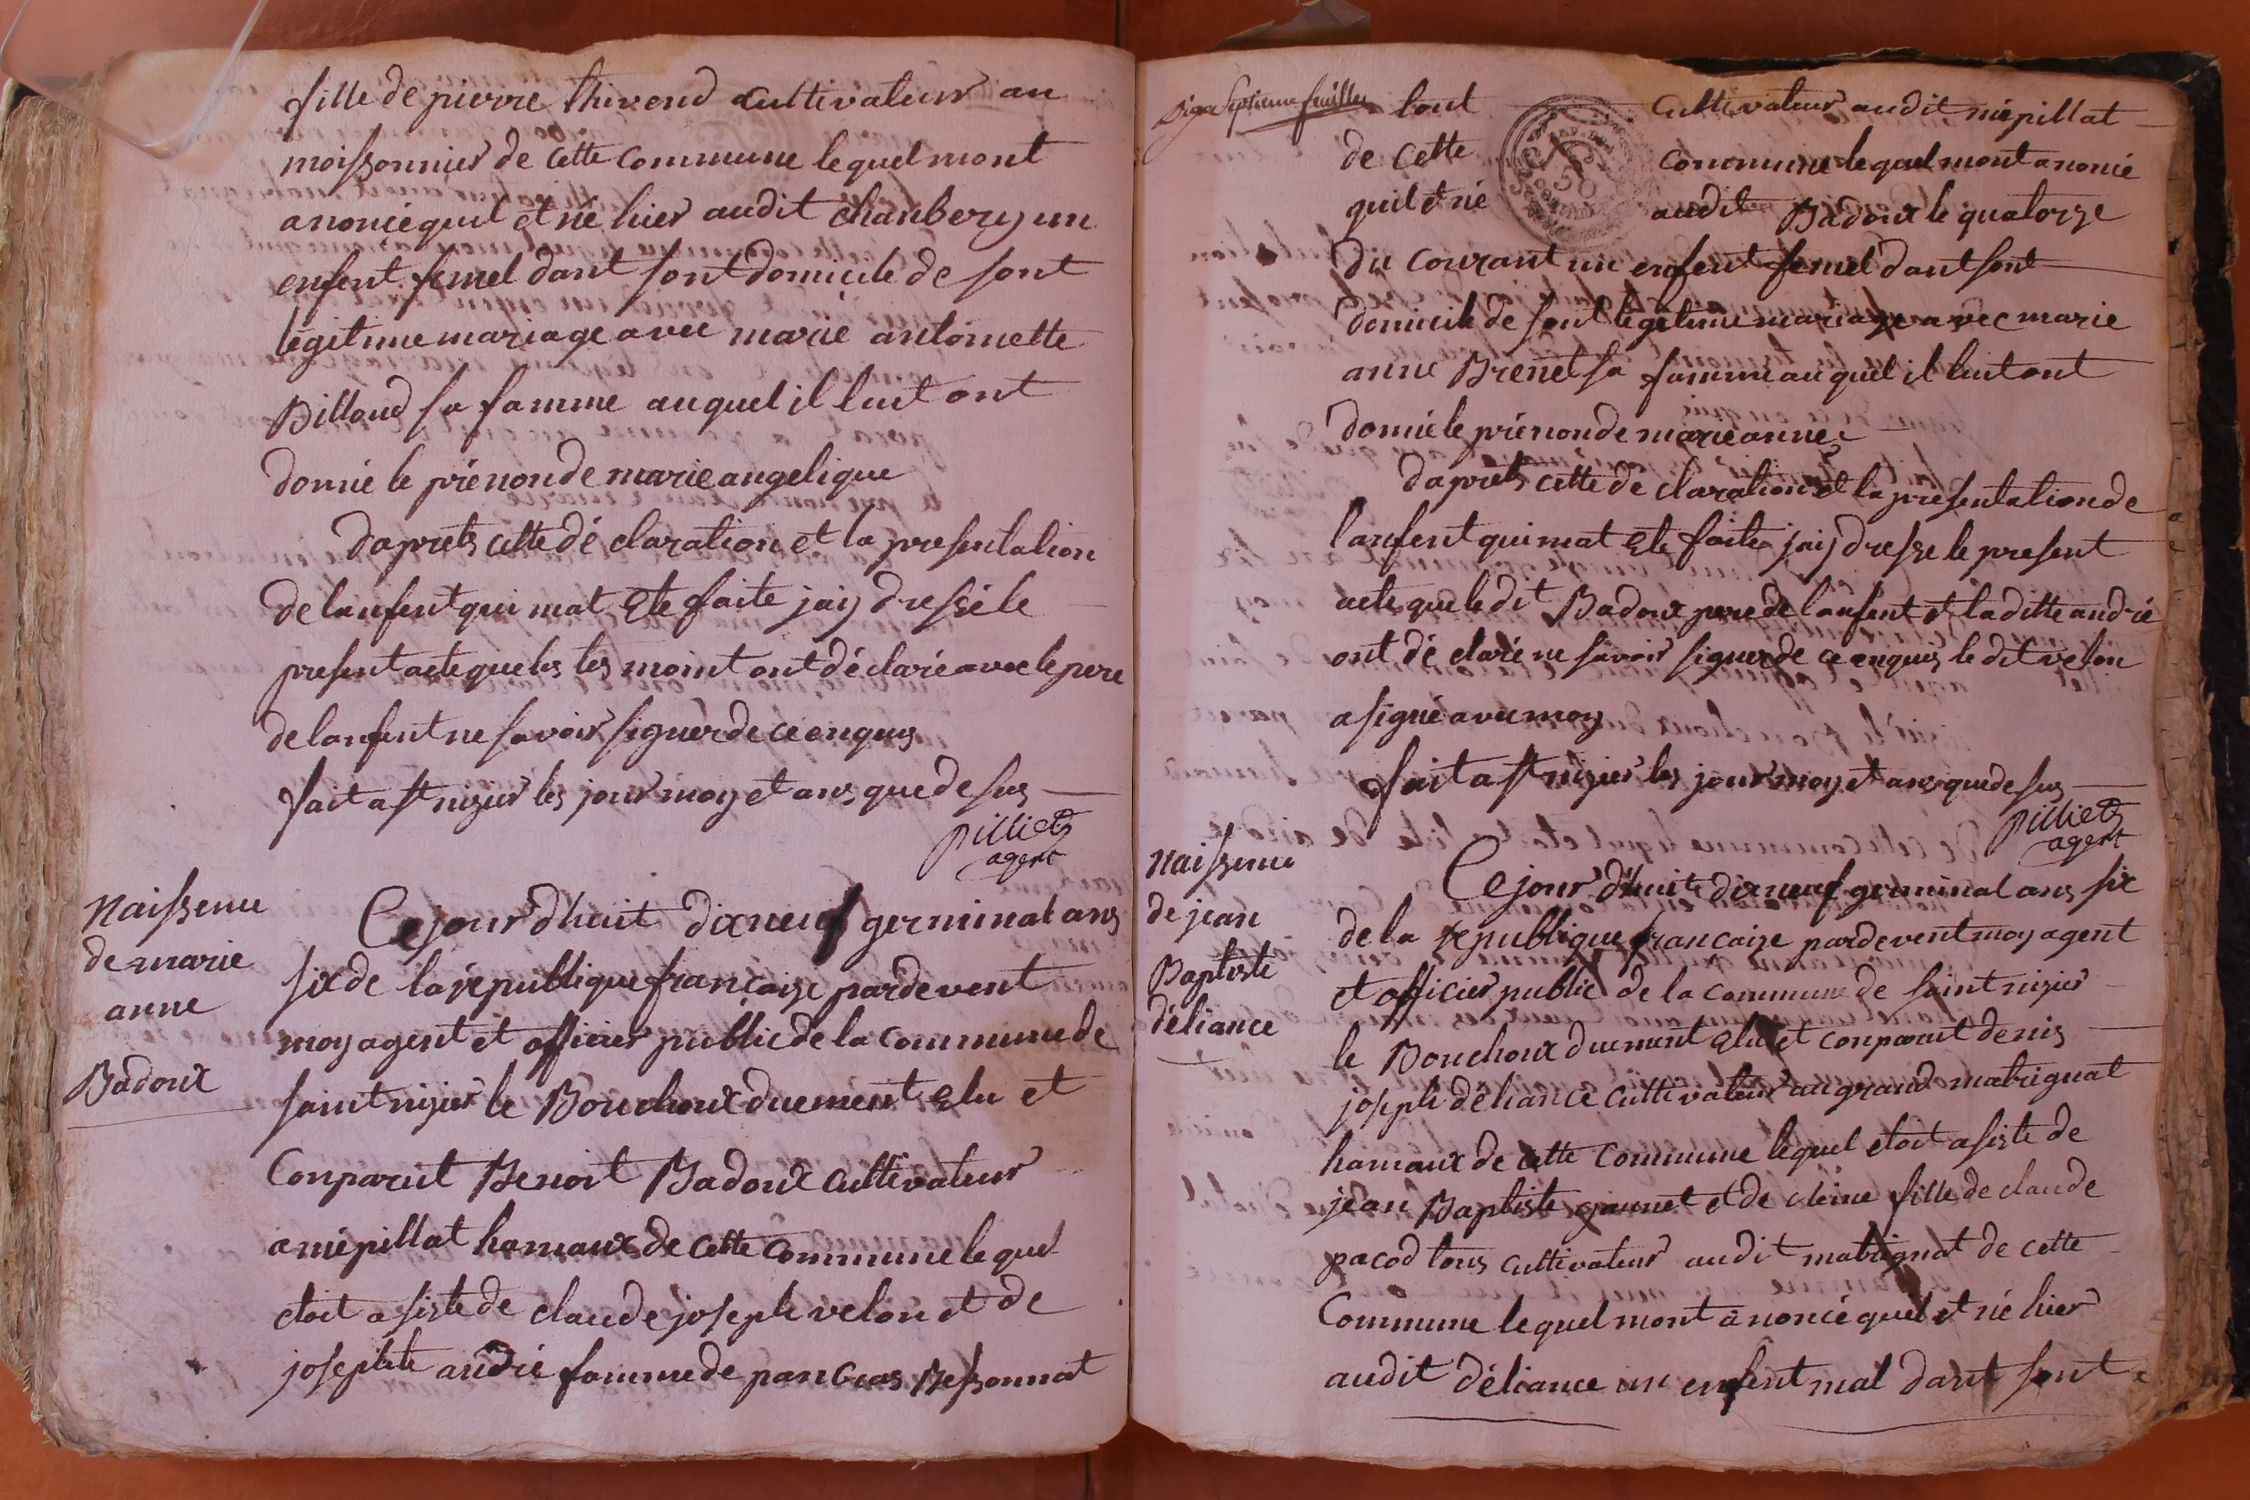 fille de pierre thivend cultivateur au
moissonnier de cette commune lequel mont
anoncé quil et né hier audit chanbery un
enfent femel dant sont domicile de sont
légitime mariage avec marie antoinette
Billoud sa famme auquel il luit ont
donné le prénon de marie angelique
daprets cette dé claration et la presentation
de lanfent qui mat Ete faite jaij dressé le
present acte que les tes moint ont déclaré avec le pere
de lanfent ne savoir signer de ce enquis
fait a st nizier les jour moy et ans que de sus
pilliet
agent
Naissence
de marie
anne
Badoux
Ce jour dhuit dixneuf germinal ans
six de la république francaize pardevent
moy agent et officier public de la commune de
saint nizier le Bouchoux duement Elu et
Conparut Benoit Badoux cultivateur
a mépillat hamaux de cette commune lequel
etoit asiste de claude joseph velon et de
josephte andré famme de pancras Bessonnat
Dixseptieme feuillet
tout cultivateur audit mépillat
de cette commune lequel mont anoncé
quil et né audit Badoux le quatorze
du courant un enfent femel dant sont
domicile de sont légitime mariage avec marie
anne Brenet sa famme auquel il luit ont
donné le prénon de marie anne
daprets cette dé claration et la presentation de
lanfent qui mat Ete faite jaij dresse le present
acte que ledit Badoux pere de lanfent et laditte andré
ont dé claré ne savoir signer de ce enquis le dit velon
a signé avec moy
fait a st nizier les jour moy et ans que de sus
pilliet
agent
Naissence
de jean
Baptiste
déliance
Ce jour dhuit dixneuf germinal ans six
de la republique francaize pardevent moy agent
et officier public de la commune de saint nizier
le Bouchoux duement Elu et conparut denis
joseph déliance cultivateur au grand matrignat
hamaux de cette commune lequel etoit asiste de
jean Baptiste et de claine fille de claude
pacod tous cultivateur audit matrignat de cette
Commune lequel mont anoncé quil et né hier
audit déliance un enfent mal dant sont